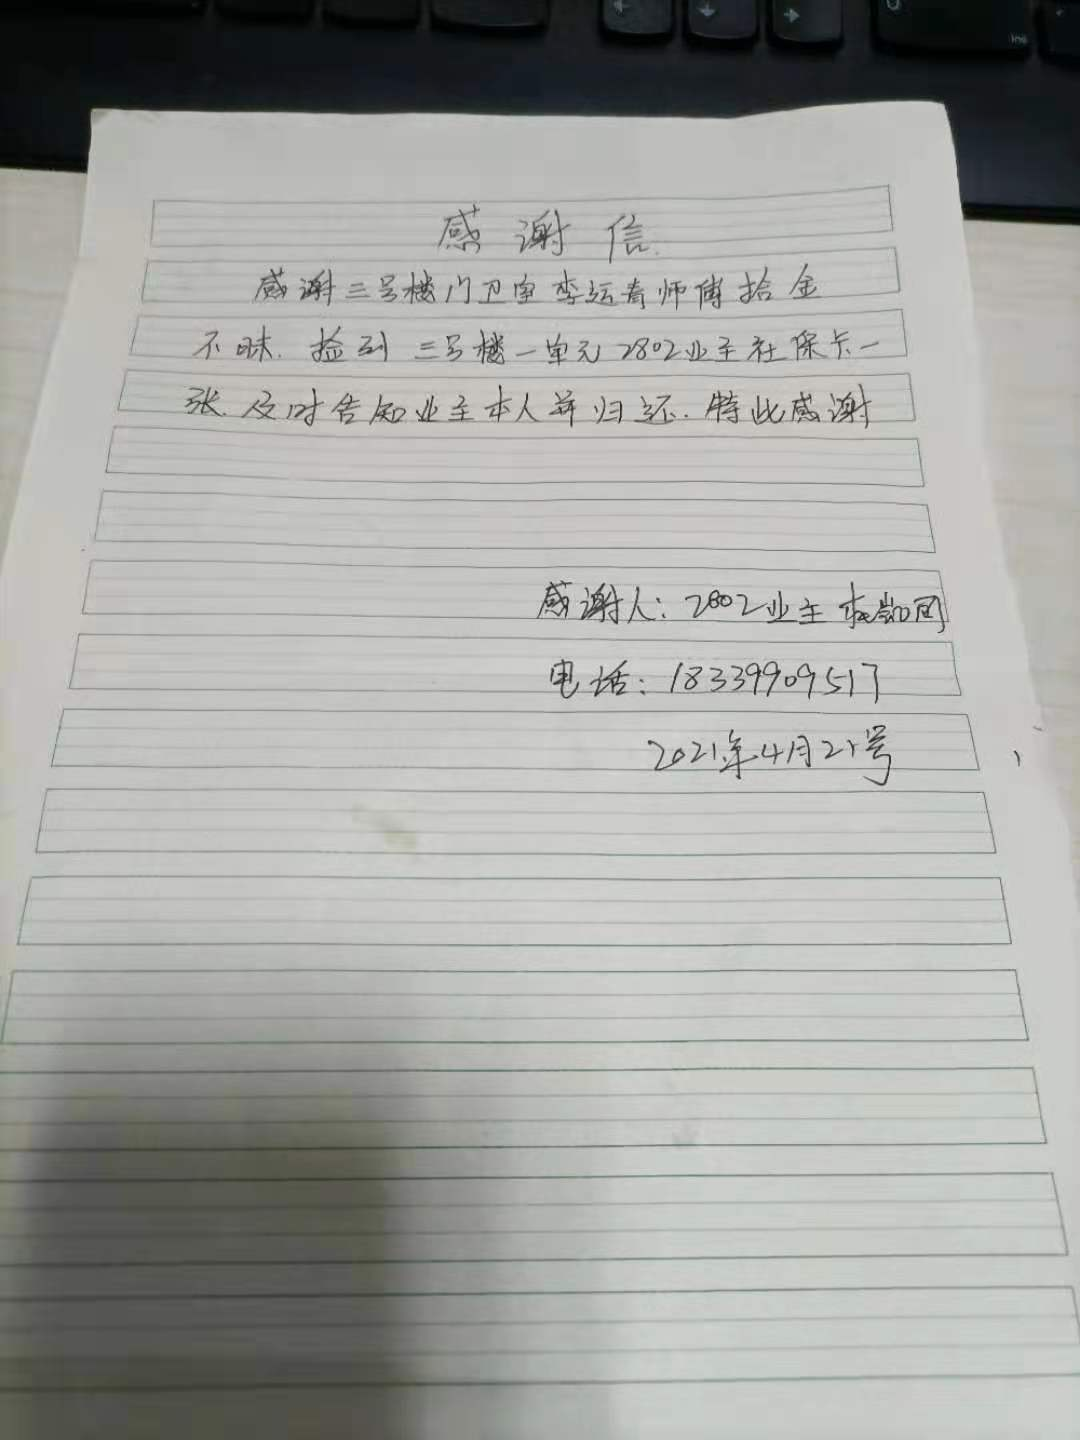 感谢信
感谢三号楼门卫室李运青师傅拾金
不昧.捡到三号楼一单元2802业主社保卡一
张.及时告知业主本人并归还.特此感谢
感谢人:2802业主
电话:18339909517
2021年4月21号